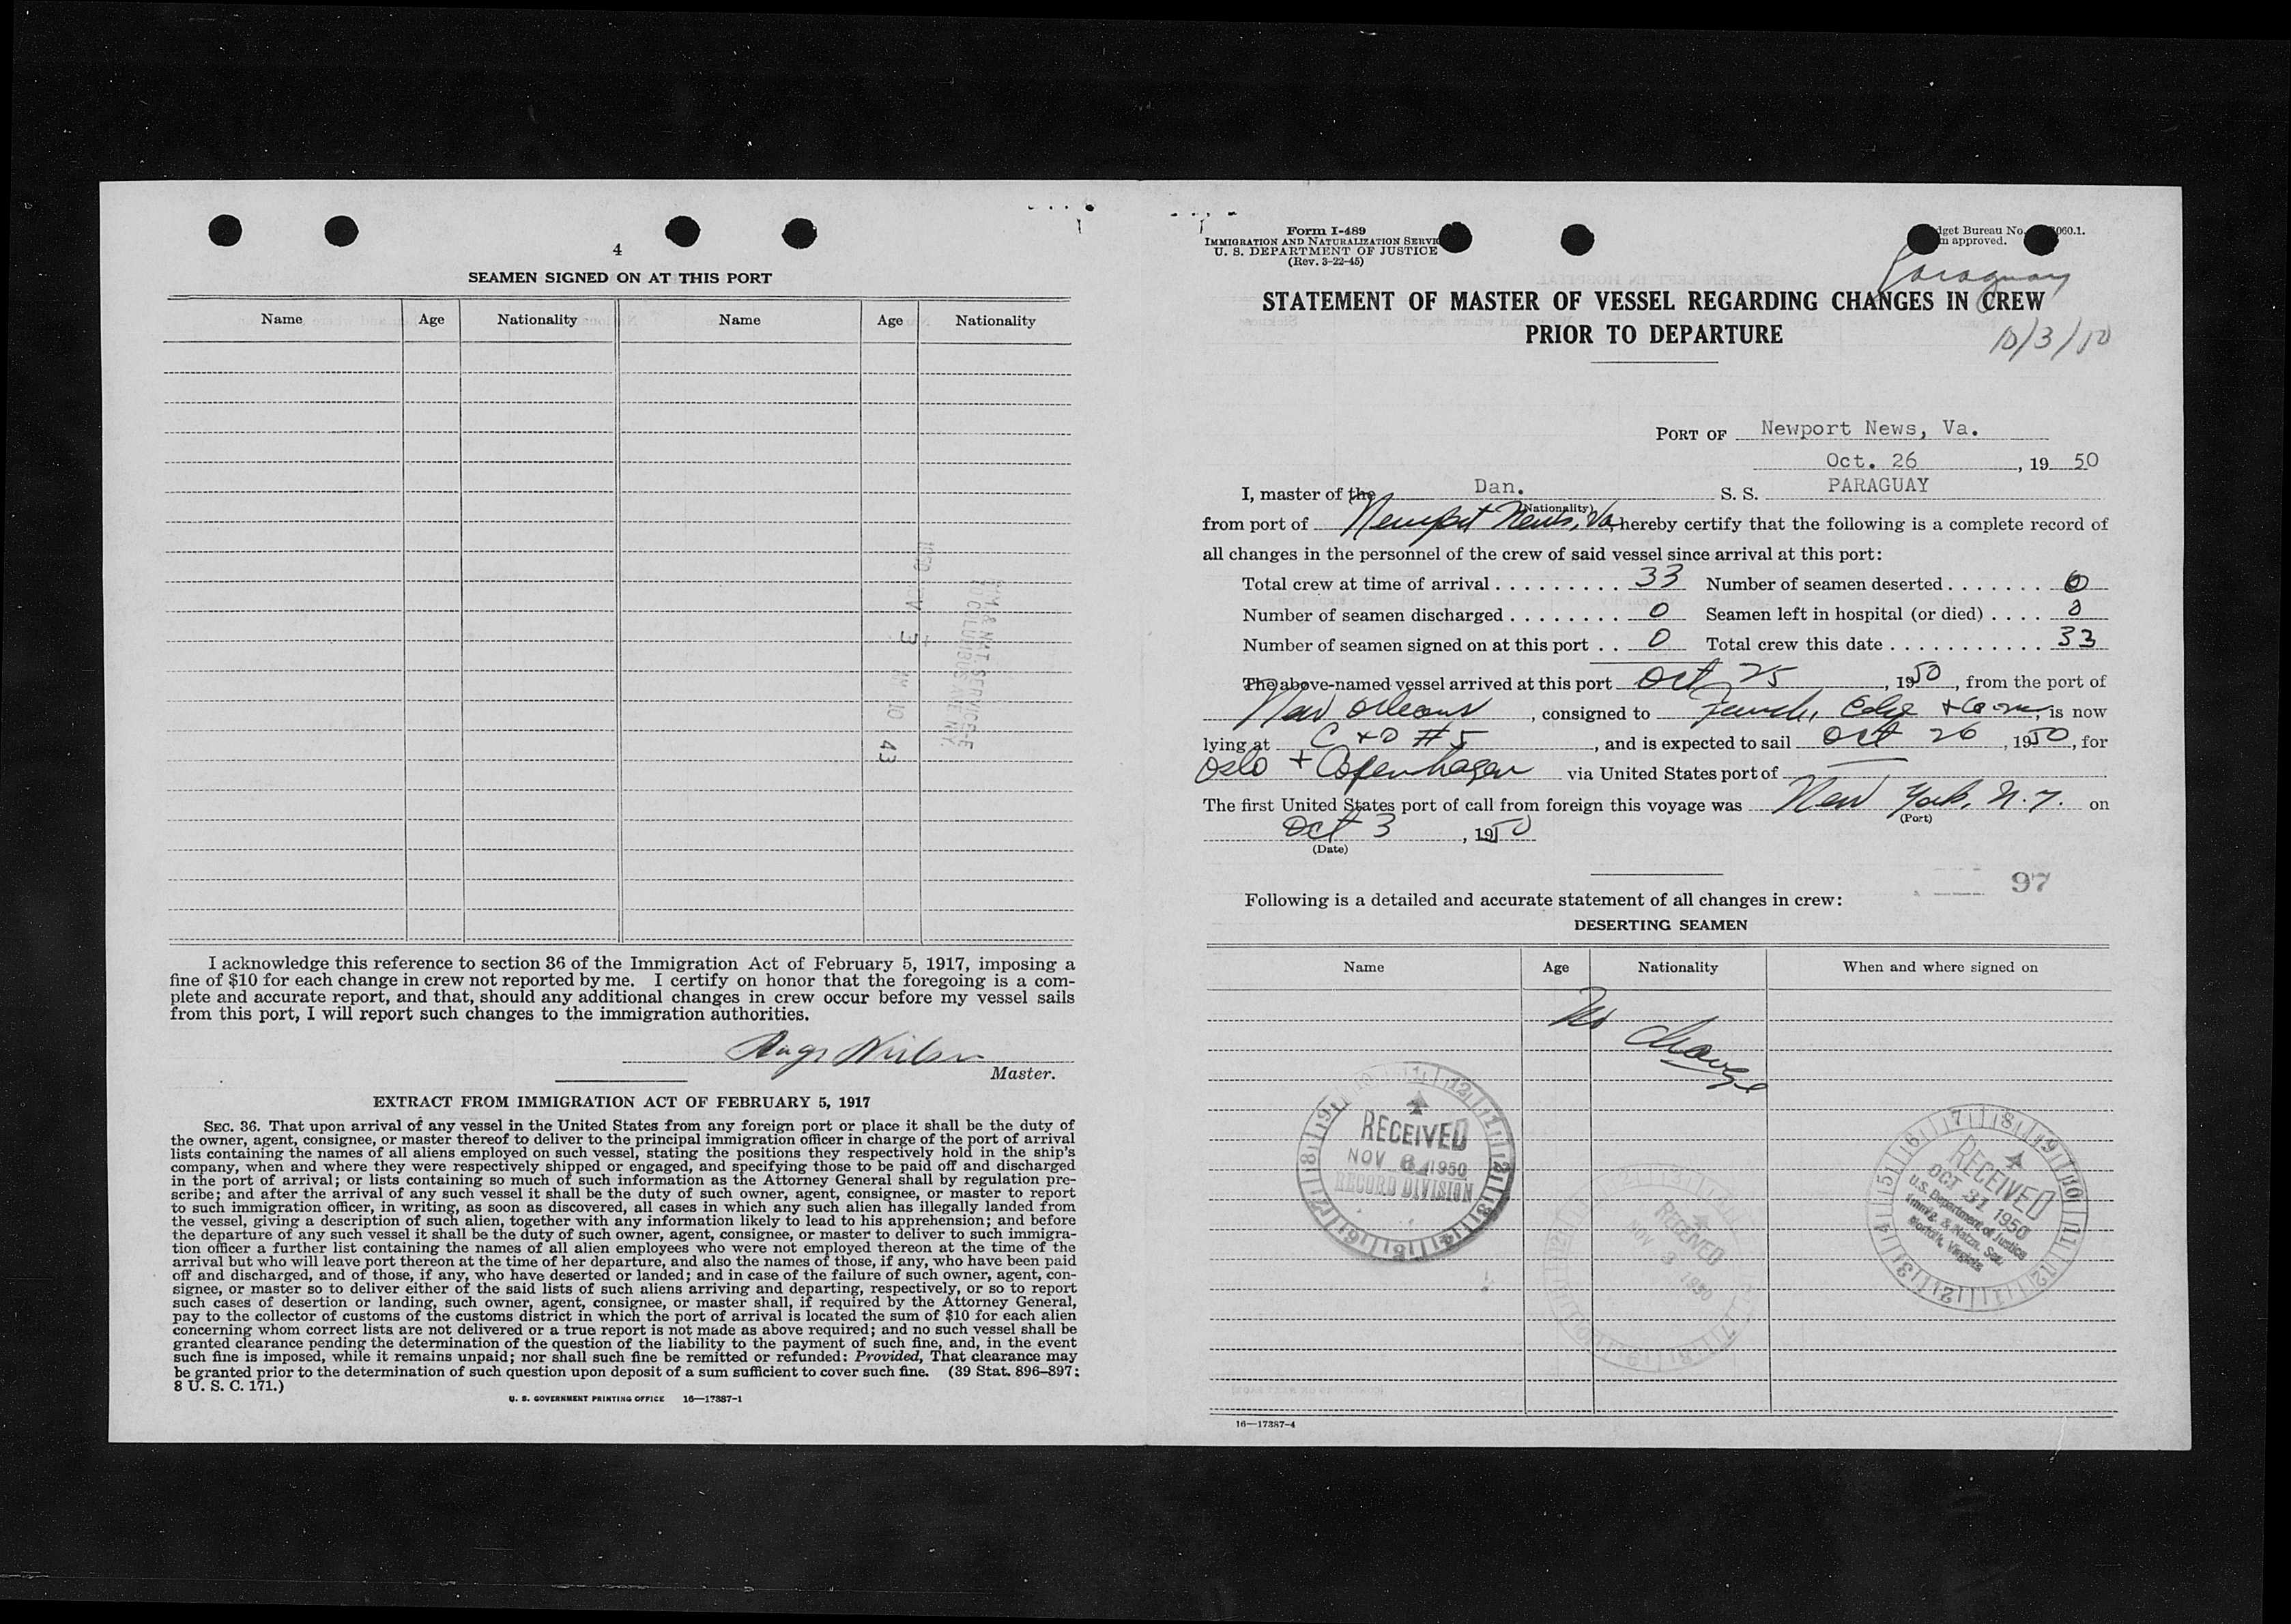 4
SEAMEN SIGNED ON AT THIS PORT
Name Age Nationality Name Age Nationality
I acknowledge this reference to section 36 of the Immigration Act of February 5, 1917, imposing a
fine of $10 for each change in crew not reported by me. I certify on honor that the foregoing is a com-
plete and accurate report, and that, should any additional changes in crew occur before my vessel sails
from this port, I will report such changes to the immigration authorities.
Master.
EXTRACT FROM IMMIGRATION ACT OF FEBRUARY 5, 1917
SEC. 36. That upon arrival of any vessel in the United States from any foreign port or place it shall be the duty of
the owner, agent, consignee, or master thereof to deliver to the principal immigration officer in charge of the port of arrival
lists containing the names of all aliens employed on such vessel, stating the positions they respectively hold in the ship's
company, when and where they were respectively shipped or engaged, and specifying those to be paid off and discharged
in the port of arrival; or lists containing so much of such information as the Attorney General shall by regulation pre-
scribe; and after the arrival of any such vessel it shall be the duty of such owner, agent, consignee, or master to report
to such immigration officer, in writing, as soon as discovered, all cases in which any such alien has illegally landed from
the vessel, giving a description of such alien, together with any information likely to lead to his apprehension; and before
the departure of any such vessel it shall be the duty of such owner, agent, consignee, or master to deliver to such immigra-
tion officer a further list containing the names of all alien employees who were not employed thereon at the time of the
arrival but who will leave port thereon at the time of her departure, and also the names of those, if any, who have been paid
off and discharged, and of those, if any, who have deserted or landed; and in case of the failure of such owner, agent, con-
signee, or master so to deliver either of the said lists of such aliens arriving and departing, respectively, or so to report
such cases of desertion or landing, such owner, agent, consignee, or master shall, if required by the Attorney General,
pay to the collector of customs of the customs district in which the port of arrival is located the sum of $10 for each alien
concerning whom correct lists are not delivered or a true report is not made as above required; and no such vessel shall be
granted clearance pending the determination of the question of the liability to the payment of such fine, and, in the event
such fine is imposed, while it remains unpaid; nor shall such fine be remitted or refunded: Provided, That clearance may
be granted prior to the determination of such question upon deposit of a sum sufficient to cover such fine. (39 Stat. 896–897;
8 U. S. C. 171.)
U. S. GOVERNMENT PRINTING OFFICE 16—17387-1
Form I-489
IMMIGRATION AND NATURALIZATION SERVI
U. S. DEPARTMENT OF JUSTICE
(Rev. 3-22-45)
dget Bureau No. 060.1.
m approved.
Paraguay
STATEMENT OF MASTER OF VESSEL REGARDING CHANGES IN CREW
PRIOR TO DEPARTURE
10/3/50
PORT OF Newport News, Va.
Oct. 26, 19 50
I, master of the Dan. S. S. PARAGUAY
(Nationality)
from port of Newport News, Va, hereby certify that the following is a complete record of
all changes in the personnel of the crew of said vessel since arrival at this port:
Total crew at time of arrival . . . . . . . . . 33 Number of seamen deserted . . . . . . . 0
Number of seamen discharged . . . . . . . . 0 Seamen left in hospital (or died) . . . . 0
Number of seamen signed on at this port . . 0 Total crew this date . . . . . . . . . . . 33
The above-named vessel arrived at this port Oct 25, 1950, from the port of
New Orleans, consigned to Funch, Edye + Co, is now
lying at C + O # 5, and is expected to sail Oct 26, 1950, for
Oslo + Copenhagen via United States port of —
The first United States port of call from foreign this voyage was New York, N. Y. on
(Port)
Oct 3, 1950
(Date)
97
Following is a detailed and accurate statement of all changes in crew:
DESERTING SEAMEN
Name Age Nationality When and where signed on
No Change
RECEIVED
NOV 6 1950
RECORD DIVISION
RECEIVED
NOV 3 1950
RECEIVED
OCT 31 1950
U.S. Department of Justice
Immig. & Natzn. Ser.
Norfolk, Virginia
16—17387-4